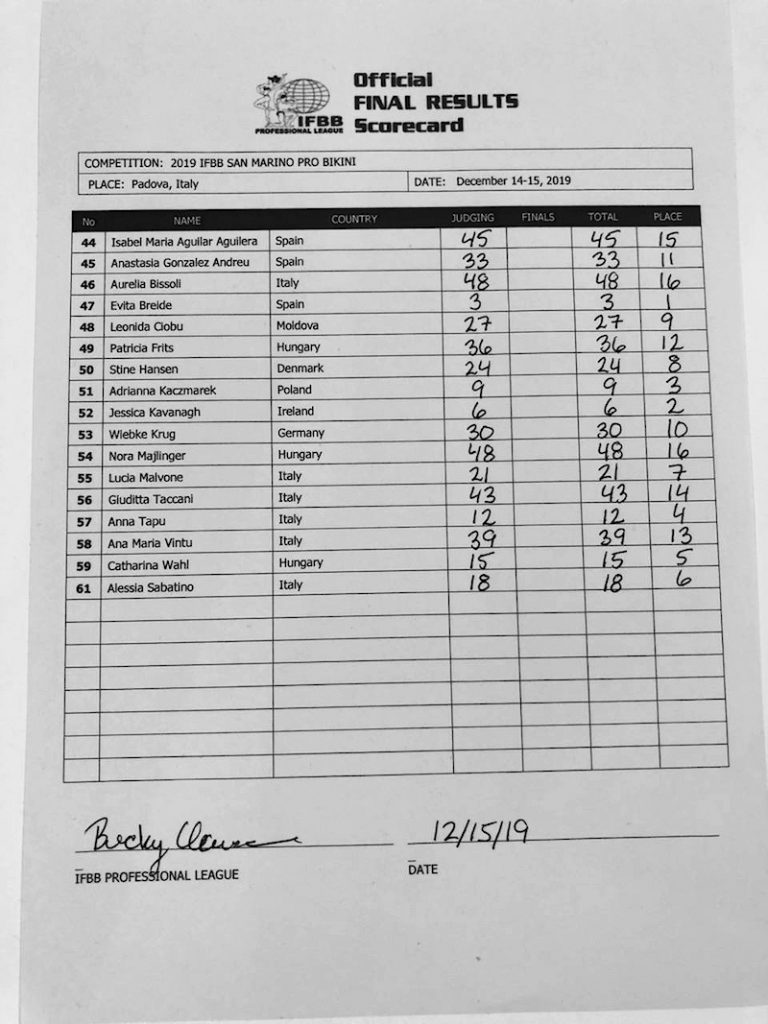 Official
FINAL RESULTS
Scorecard
IFBB
PROFESSIONAL LEAGUE
COMPETITION: 2019 IFBB SAN MARINO PRO BIKINI
PLACE: Padova, Italy DATE: December 14-15, 2019
No NAME COUNTRY JUDGING FINALS TOTAL PLACE
44 Isabel Maria Aguilar Aguilera Spain 45 45 15
45 Anastasia Gonzalez Andreu Spain 33 33 11
46 Aurelia Bissoli Italy 48 48 16
47 Evita Breide Spain 3 3 1
48 Leonida Ciobu Moldova 27 27 9
49 Patricia Frits Hungary 36 36 12
50 Stine Hansen Denmark 24 24 8
51 Adrianna Kaczmarek Poland 9 9 3
52 Jessica Kavanagh Ireland 6 6 2
53 Wiebke Krug Germany 30 30 10
54 Nora Majlinger Hungary 48 48 16
55 Lucia Malvone Italy 21 21 7
56 Giuditta Taccani Italy 43 43 14
57 Anna Tapu Italy 12 12 4
58 Ana Maria Vintu Italy 39 39 13
59 Catharina Wahl Hungary 15 15 5
61 Alessia Sabatino Italy 18 18 6
Becky 12/15/19
IFBB PROFESSIONAL LEAGUE DATE